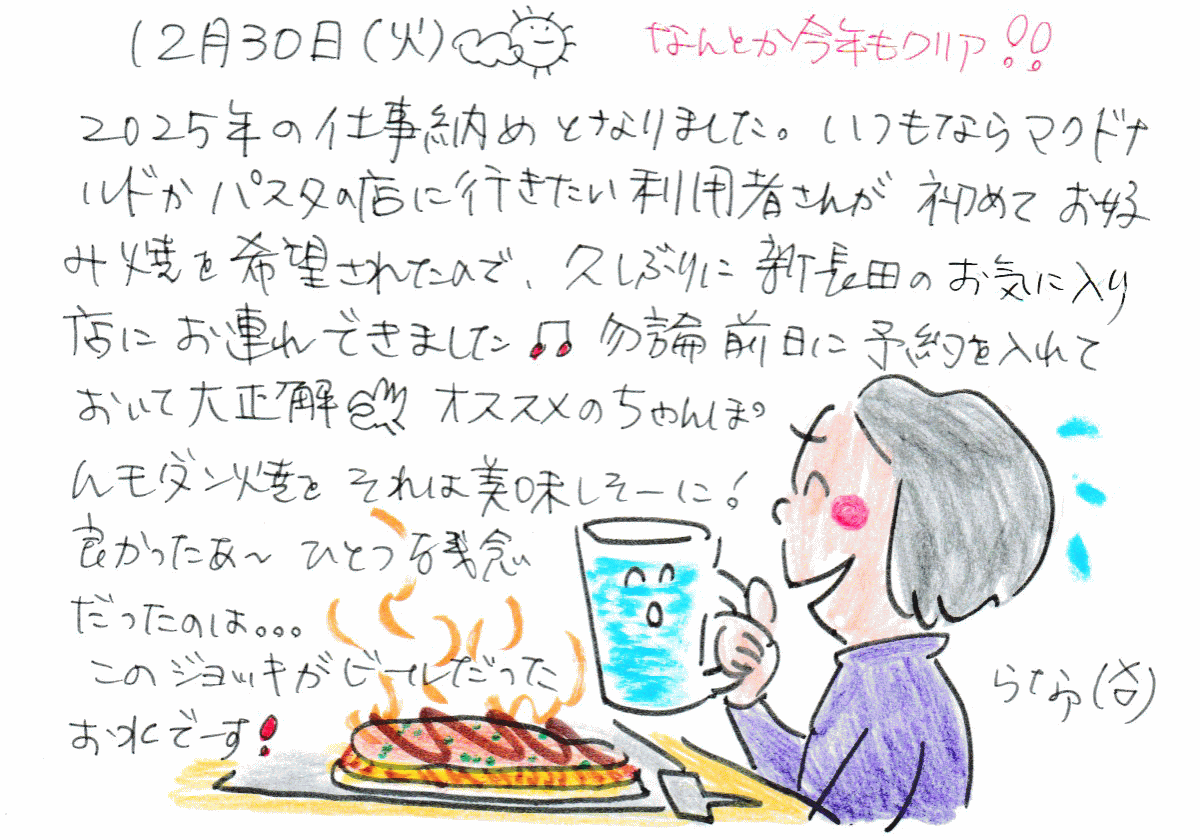 12月30日(火)
なんとか今年もクリア!!
2025年の仕事納めとなりました。いつもならマクドナ
ルドかパスタの店に行きたい利用者さんが初めてお好
み焼を希望されたので、久しぶりに新長田のお気に入り
店にお連れできました♫ 勿論前日に予約を入れて
おいて大正解 オススメのちゃんぽ
んモダン焼を それは美味しそーに!
良かったあ〜 ひとつ残念
だったのは。。。
このジョッキがビールだった
お水でーす!